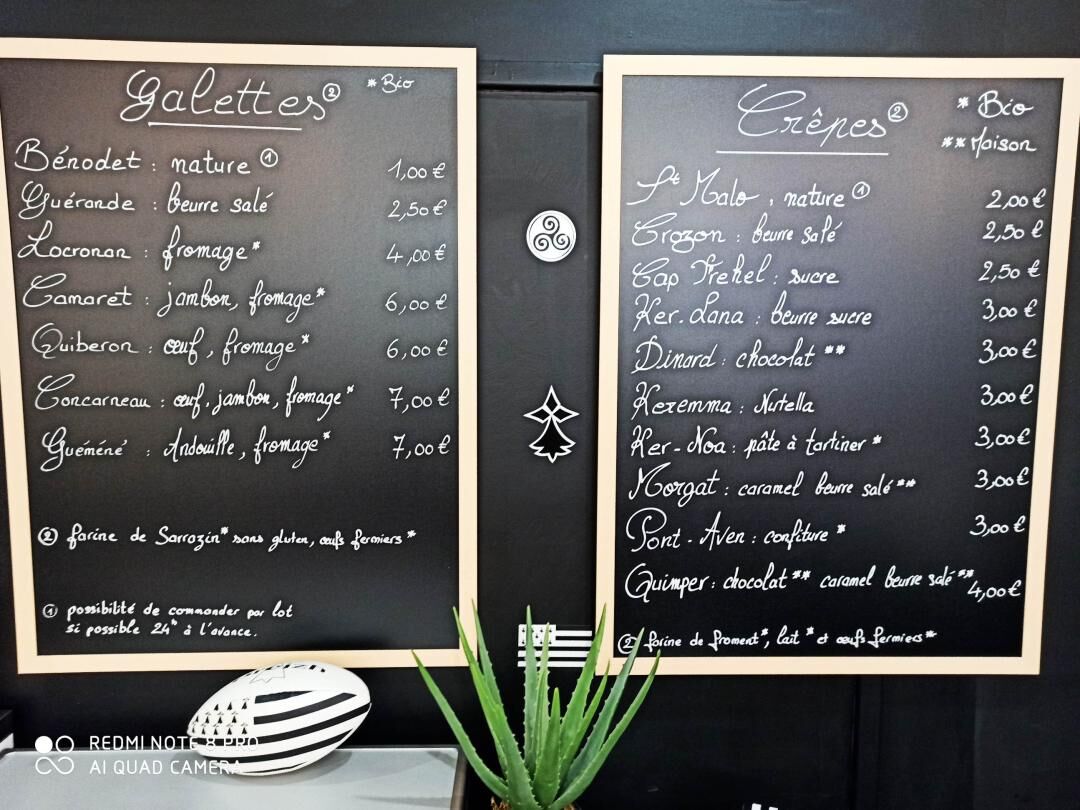 Galettes ②
* Bio
Bénodet : nature ① 1,00 €
Guérande : beurre salé 2,50 €
Locronan : fromage* 4,00 €
Camaret : jambon, fromage* 6,00 €
Quiberon : œuf, fromage* 6,00 €
Concarneau : œuf, jambon, fromage* 7,00 €
Guéméné : Andouille, fromage* 7,00 €
② farine de Sarrozin* sans gluten, œufs fermiers *
① possibilité de commander par lot
si possible 24h à l'avance.
Crêpes ②
* Bio
** Maison
St Malo, nature ① 2,00 €
Crozon : beurre salé 2,50 €
Cap Frehel : sucre 2,50 €
Ker.Lana : beurre sucre 3,00 €
Dinard : chocolat ** 3,00 €
Keremma : Nutella 3,00 €
Ker-Noa : pâte à tartiner * 3,00 €
Morgat : caramel beurre salé ** 3,00 €
Pont-Aven : confiture * 3,00 €
Quimper : chocolat ** caramel beurre salé ** 4,00 €
② farine de froment*, lait * et œufs fermiers *
REDMI NOTE 8 PRO
AI QUAD CAMERA